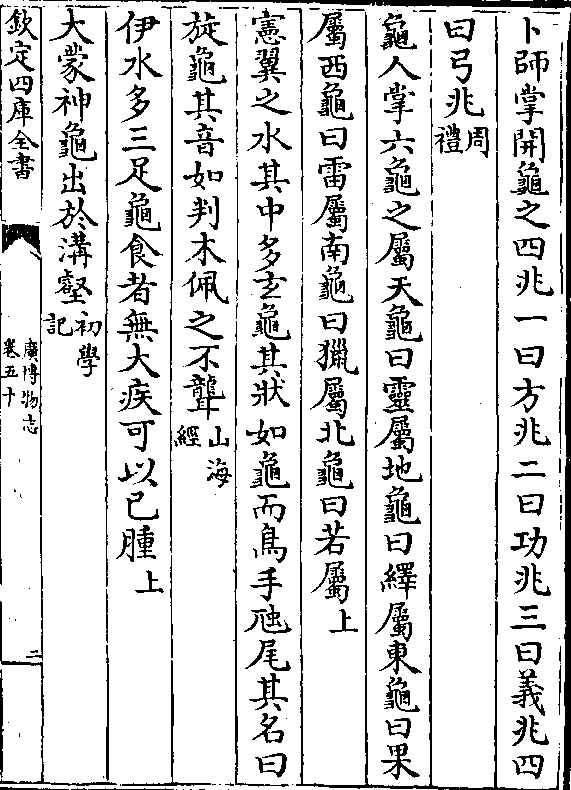 卜師掌開龜之四兆一曰方兆二曰功兆三曰義兆四
曰弓兆周禮
龜人掌六龜之屬天龜曰靈屬地龜曰繹屬東龜曰果
屬西龜曰雷屬南龜曰獵屬北龜曰若屬上
憲翼之水其中多玄龜其狀如龜而鳥手虺尾其名曰
旋龜其音如判木佩之不聾山海經
伊水多三足龜食者無大疾可以已腫上
大蒙神龜出於溝壑初學記
欽定四庫全書
廣博物志
卷五十
二